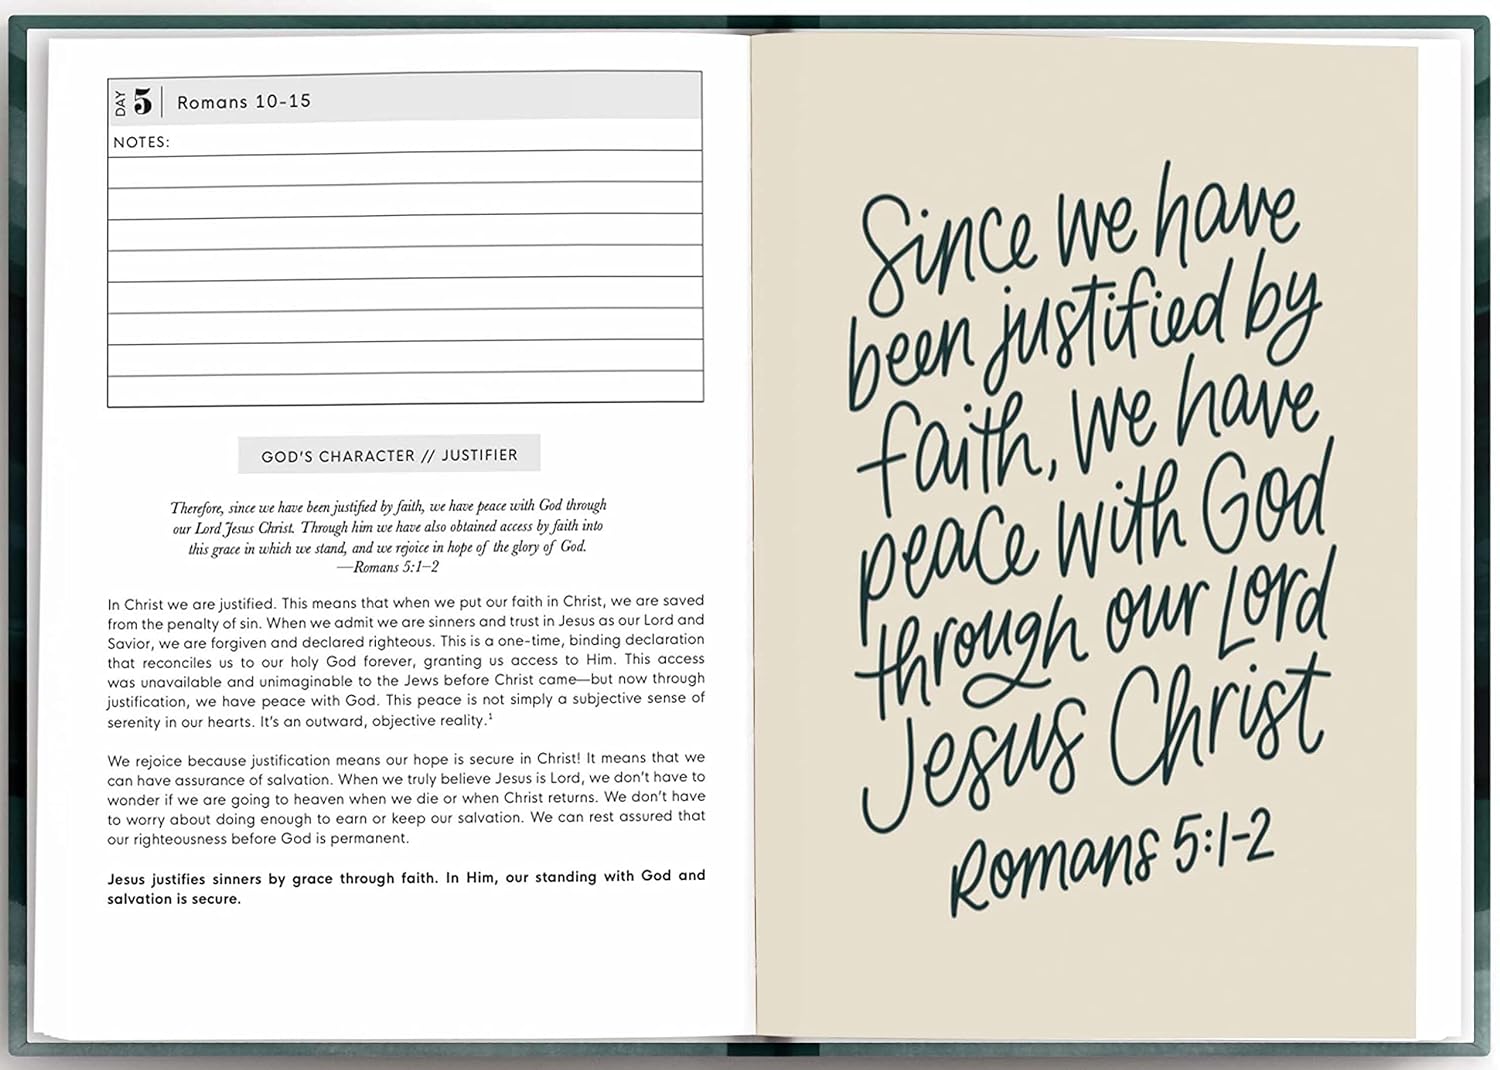 DAY 5 Romans 10-15
NOTES:
GOD'S CHARACTER // JUSTIFIER
Therefore, since we have been justified by faith, we have peace with God through
our Lord Jesus Christ. Through him we have also obtained access by faith into
this grace in which we stand, and we rejoice in hope of the glory of God.
—Romans 5:1–2
In Christ we are justified. This means that when we put our faith in Christ, we are saved
from the penalty of sin. When we admit we are sinners and trust in Jesus as our Lord and
Savior, we are forgiven and declared righteous. This is a one-time, binding declaration
that reconciles us to our holy God forever, granting us access to Him. This access
was unavailable and unimaginable to the Jews before Christ came—but now through
justification, we have peace with God. This peace is not simply a subjective sense of
serenity in our hearts. It's an outward, objective reality.¹
We rejoice because justification means our hope is secure in Christ! It means that we
can have assurance of salvation. When we truly believe Jesus is Lord, we don't have to
wonder if we are going to heaven when we die or when Christ returns. We don't have
to worry about doing enough to earn or keep our salvation. We can rest assured that
our righteousness before God is permanent.
Jesus justifies sinners by grace through faith. In Him, our standing with God and
salvation is secure.
Since we have
been justified by
faith, we have
peace with God
through our Lord
Jesus Christ
Romans 5:1-2